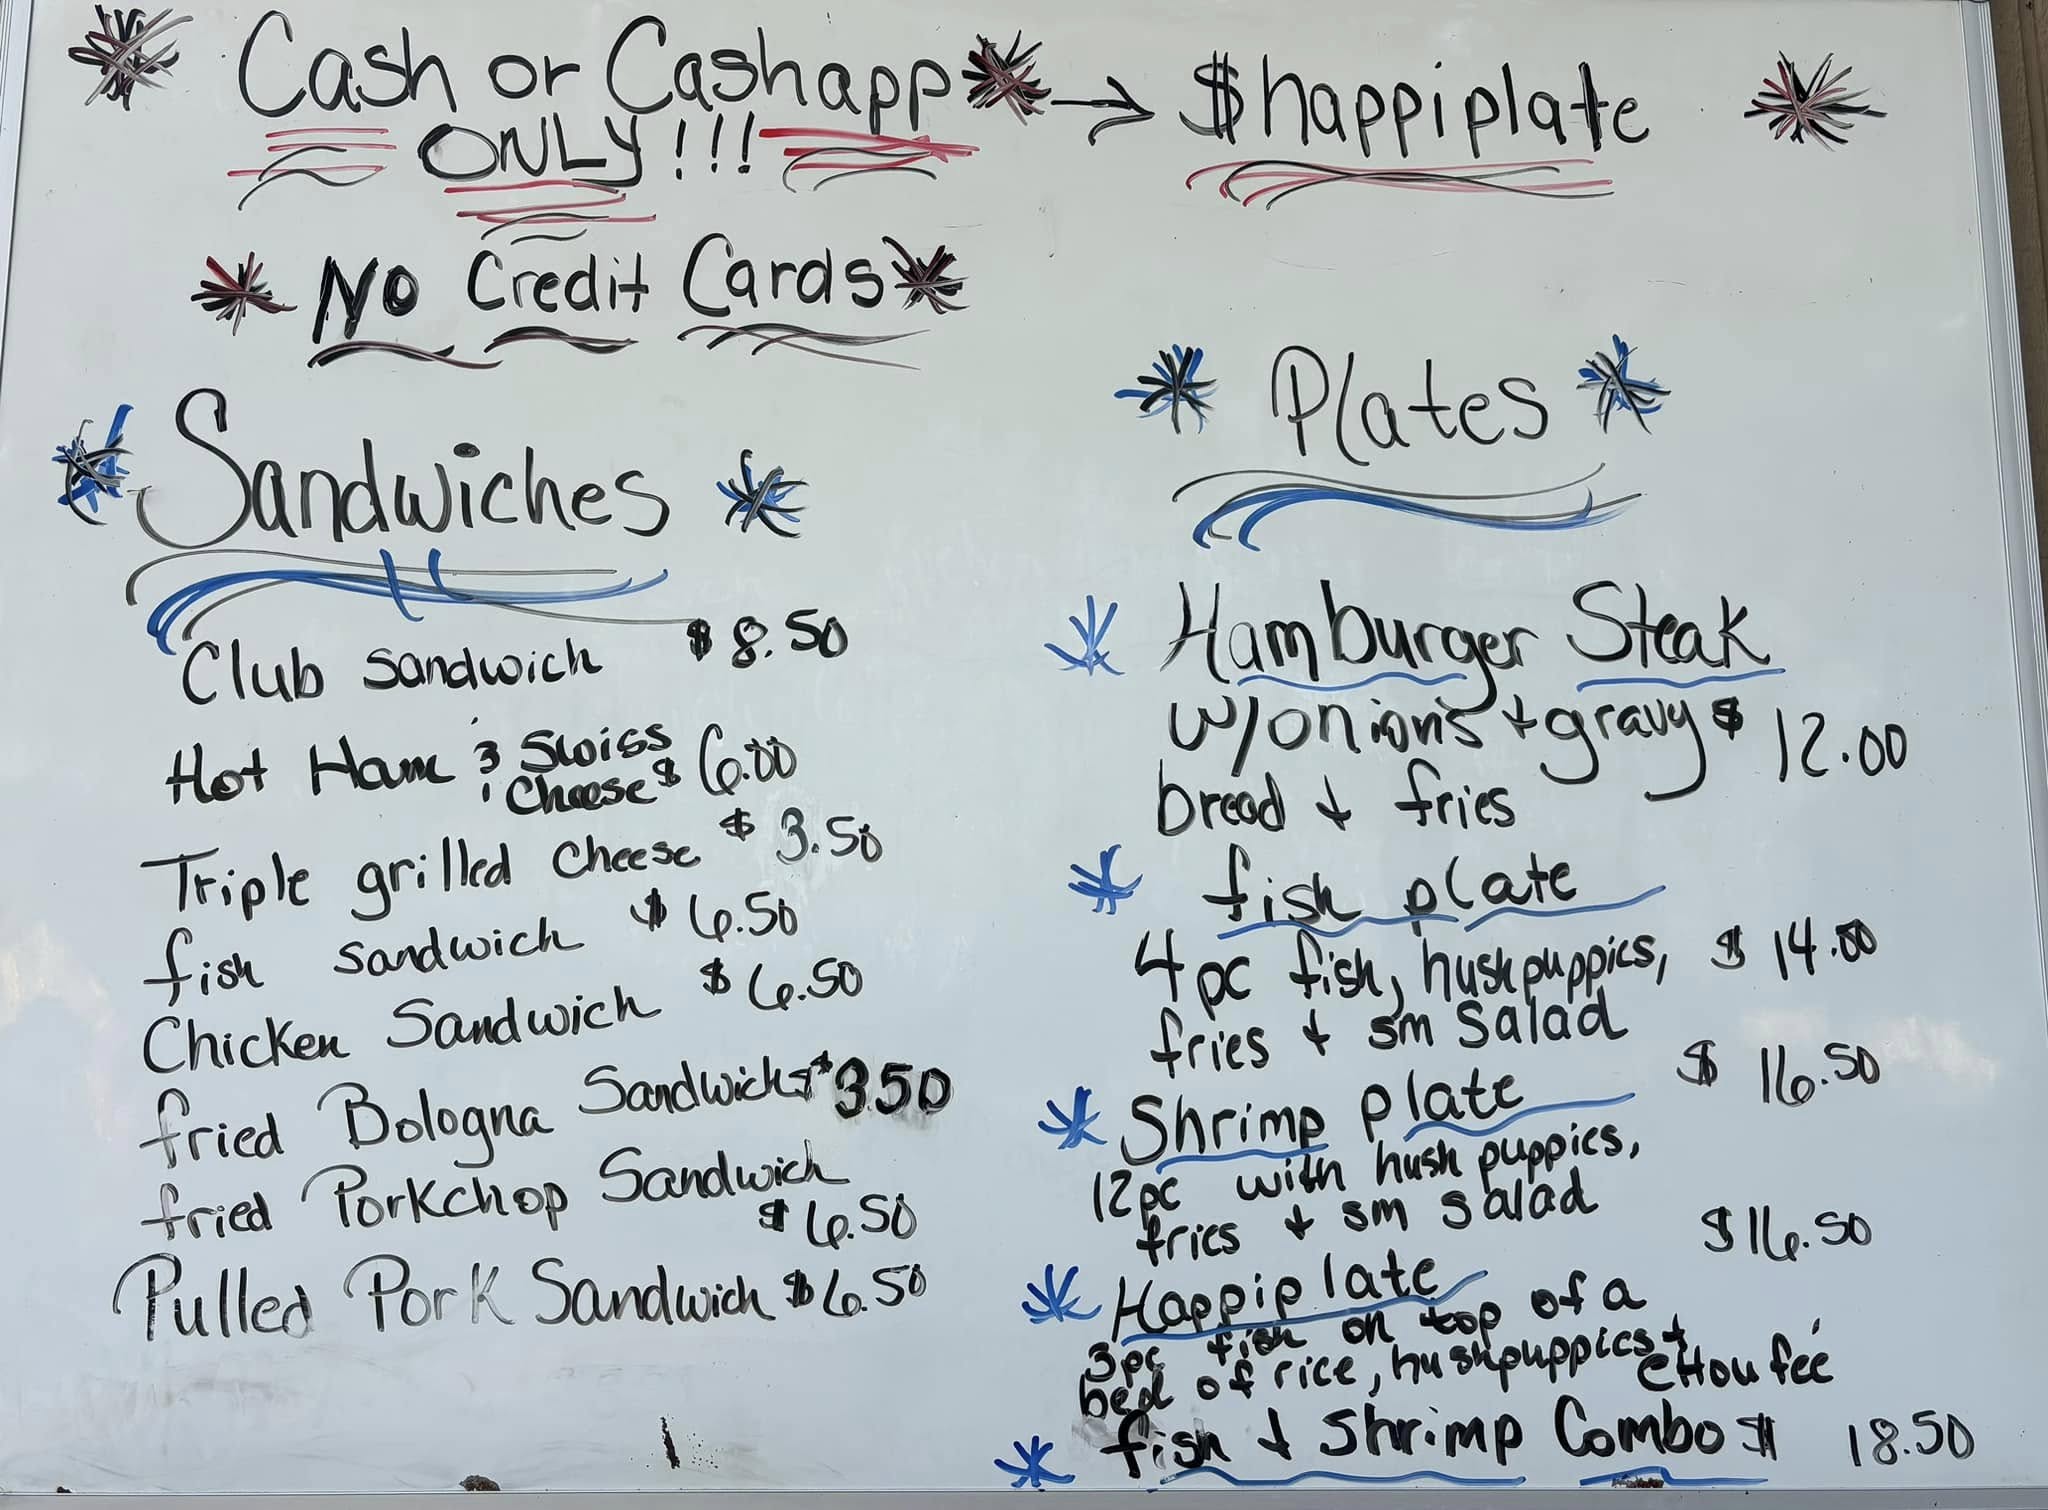 Cash or Cashapp → $happiplate
ONLY!!!
No Credit Cards
Sandwiches
Club sandwich $8.50
Hot Ham & Swiss
Cheese $6.00
Triple grilled cheese $3.50
fish sandwich $6.50
Chicken Sandwich $6.50
fried Bologna Sandwich $3.50
fried Porkchop Sandwich
$6.50
Pulled Pork Sandwich $6.50
Plates
Hamburger Steak
w/onions + gravy $12.00
bread + fries
fish plate
4pc fish, hushpuppies, $14.00
fries + sm salad
Shrimp plate $16.50
12pc with hush puppies,
fries + sm salad
Happiplate $16.50
3pc fish on top of a
bed of rice, hushpuppies +
etoufée
fish + shrimp Combo $18.50